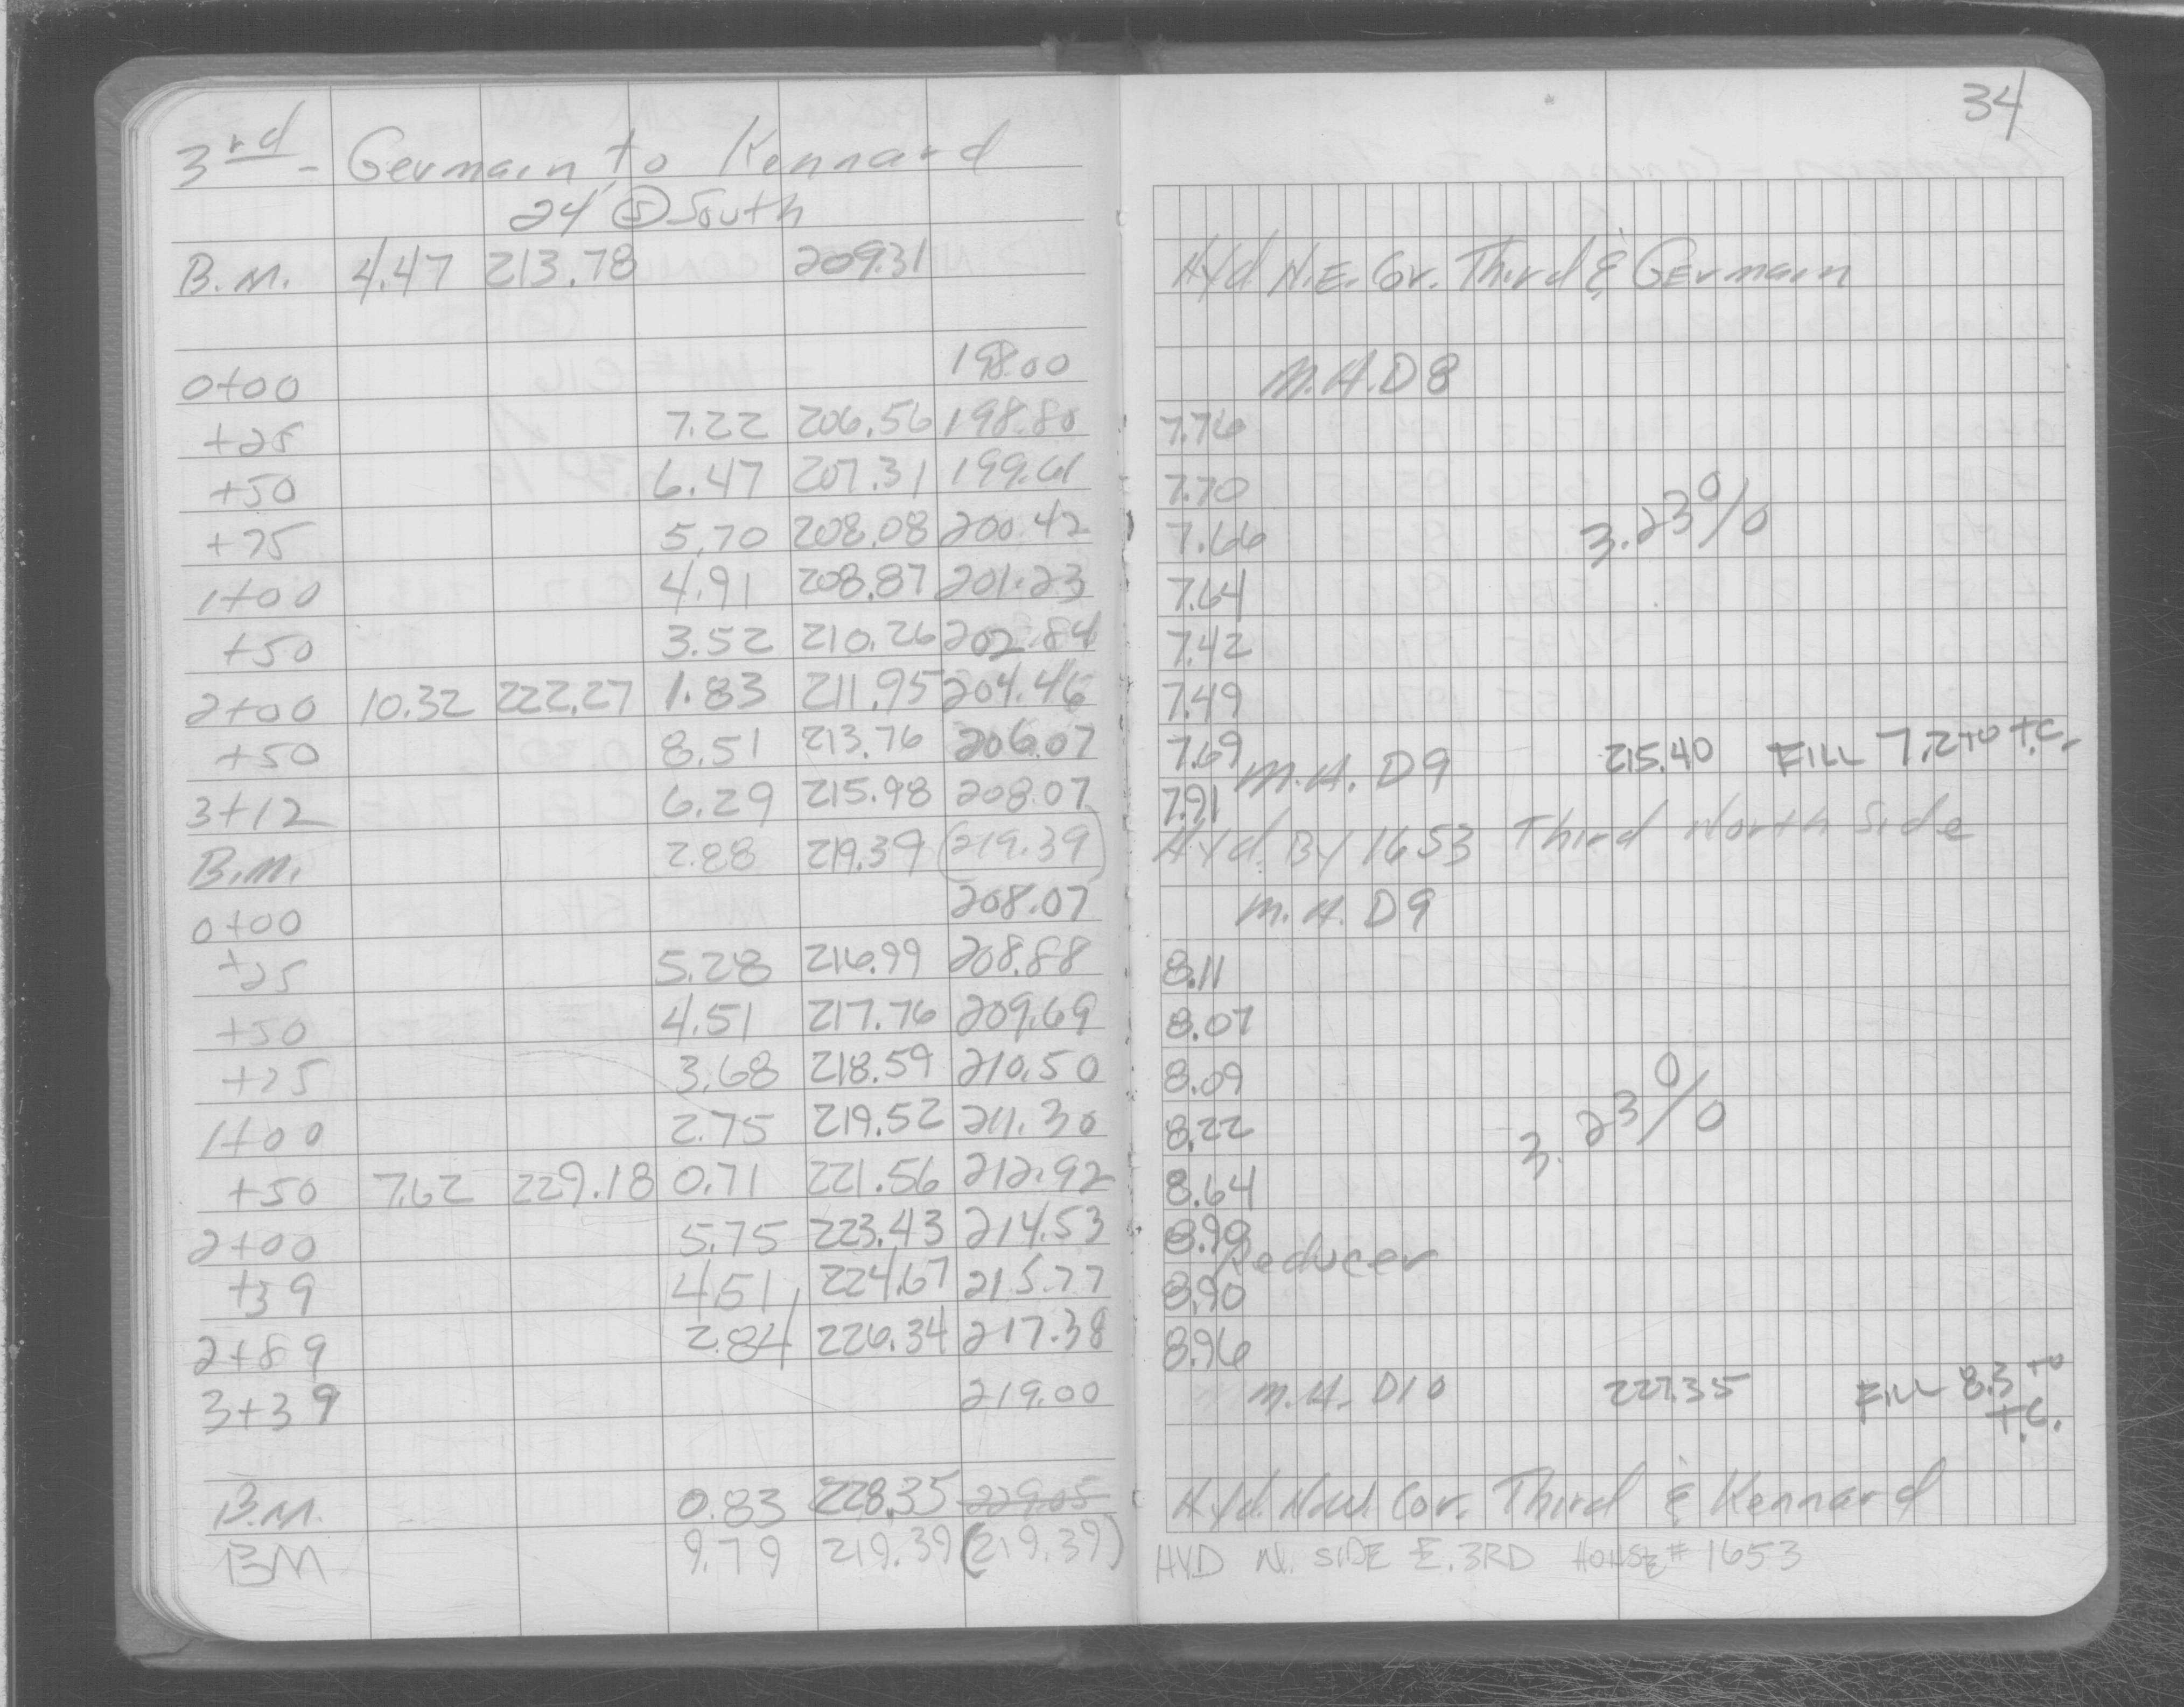 3rd - Germain to Kennard
24' Ⓢ South
B.M. 4.47 213.78 209.31
0+00 198.00
+25 7.22 206.56 198.80
+50 6.47 207.31 199.61
+75 5.70 208.08 200.42
1+00 4.91 208.87 201.23
+50 3.52 210.26 202.84
2+00 10.32 222.27 1.83 211.95 204.46
+50 8.51 213.76 206.07
3+12 6.29 215.98 208.07
B.M. 2.88 219.39 (219.39)
0+00 208.07
+25 5.28 216.99 208.88
+50 4.51 217.76 209.69
+75 3.68 218.59 210.50
1+00 2.75 219.52 211.30
+50 7.62 229.18 0.71 221.56 212.92
2+00 5.75 223.43 214.53
+39 4.51 224.67 215.77
2+89 2.84 226.34 217.38
3+39 219.00
B.M. 0.83 228.35 229.05
BM 9.79 219.39 (219.39)
34
Hyd. N.E. Cor. Third & Germain
M.H. D8
7.76
7.70
7.66 3.23%
7.64
7.42
7.49
7.69 M.H. D9 215.40 FILL 7.2 TO T.C.
7.91
Hyd. By 1653 Third North Side
M.H. D9
8.11
8.07
8.09
8.22 3.23%
8.64
8.90 Reducer
8.90
8.96
M.H. D10 227.35 FILL 8.3 TO T.C.
Hyd. N.W. Cor. Third & Kennard
HYD N. SIDE E. 3RD HOUSE # 1653